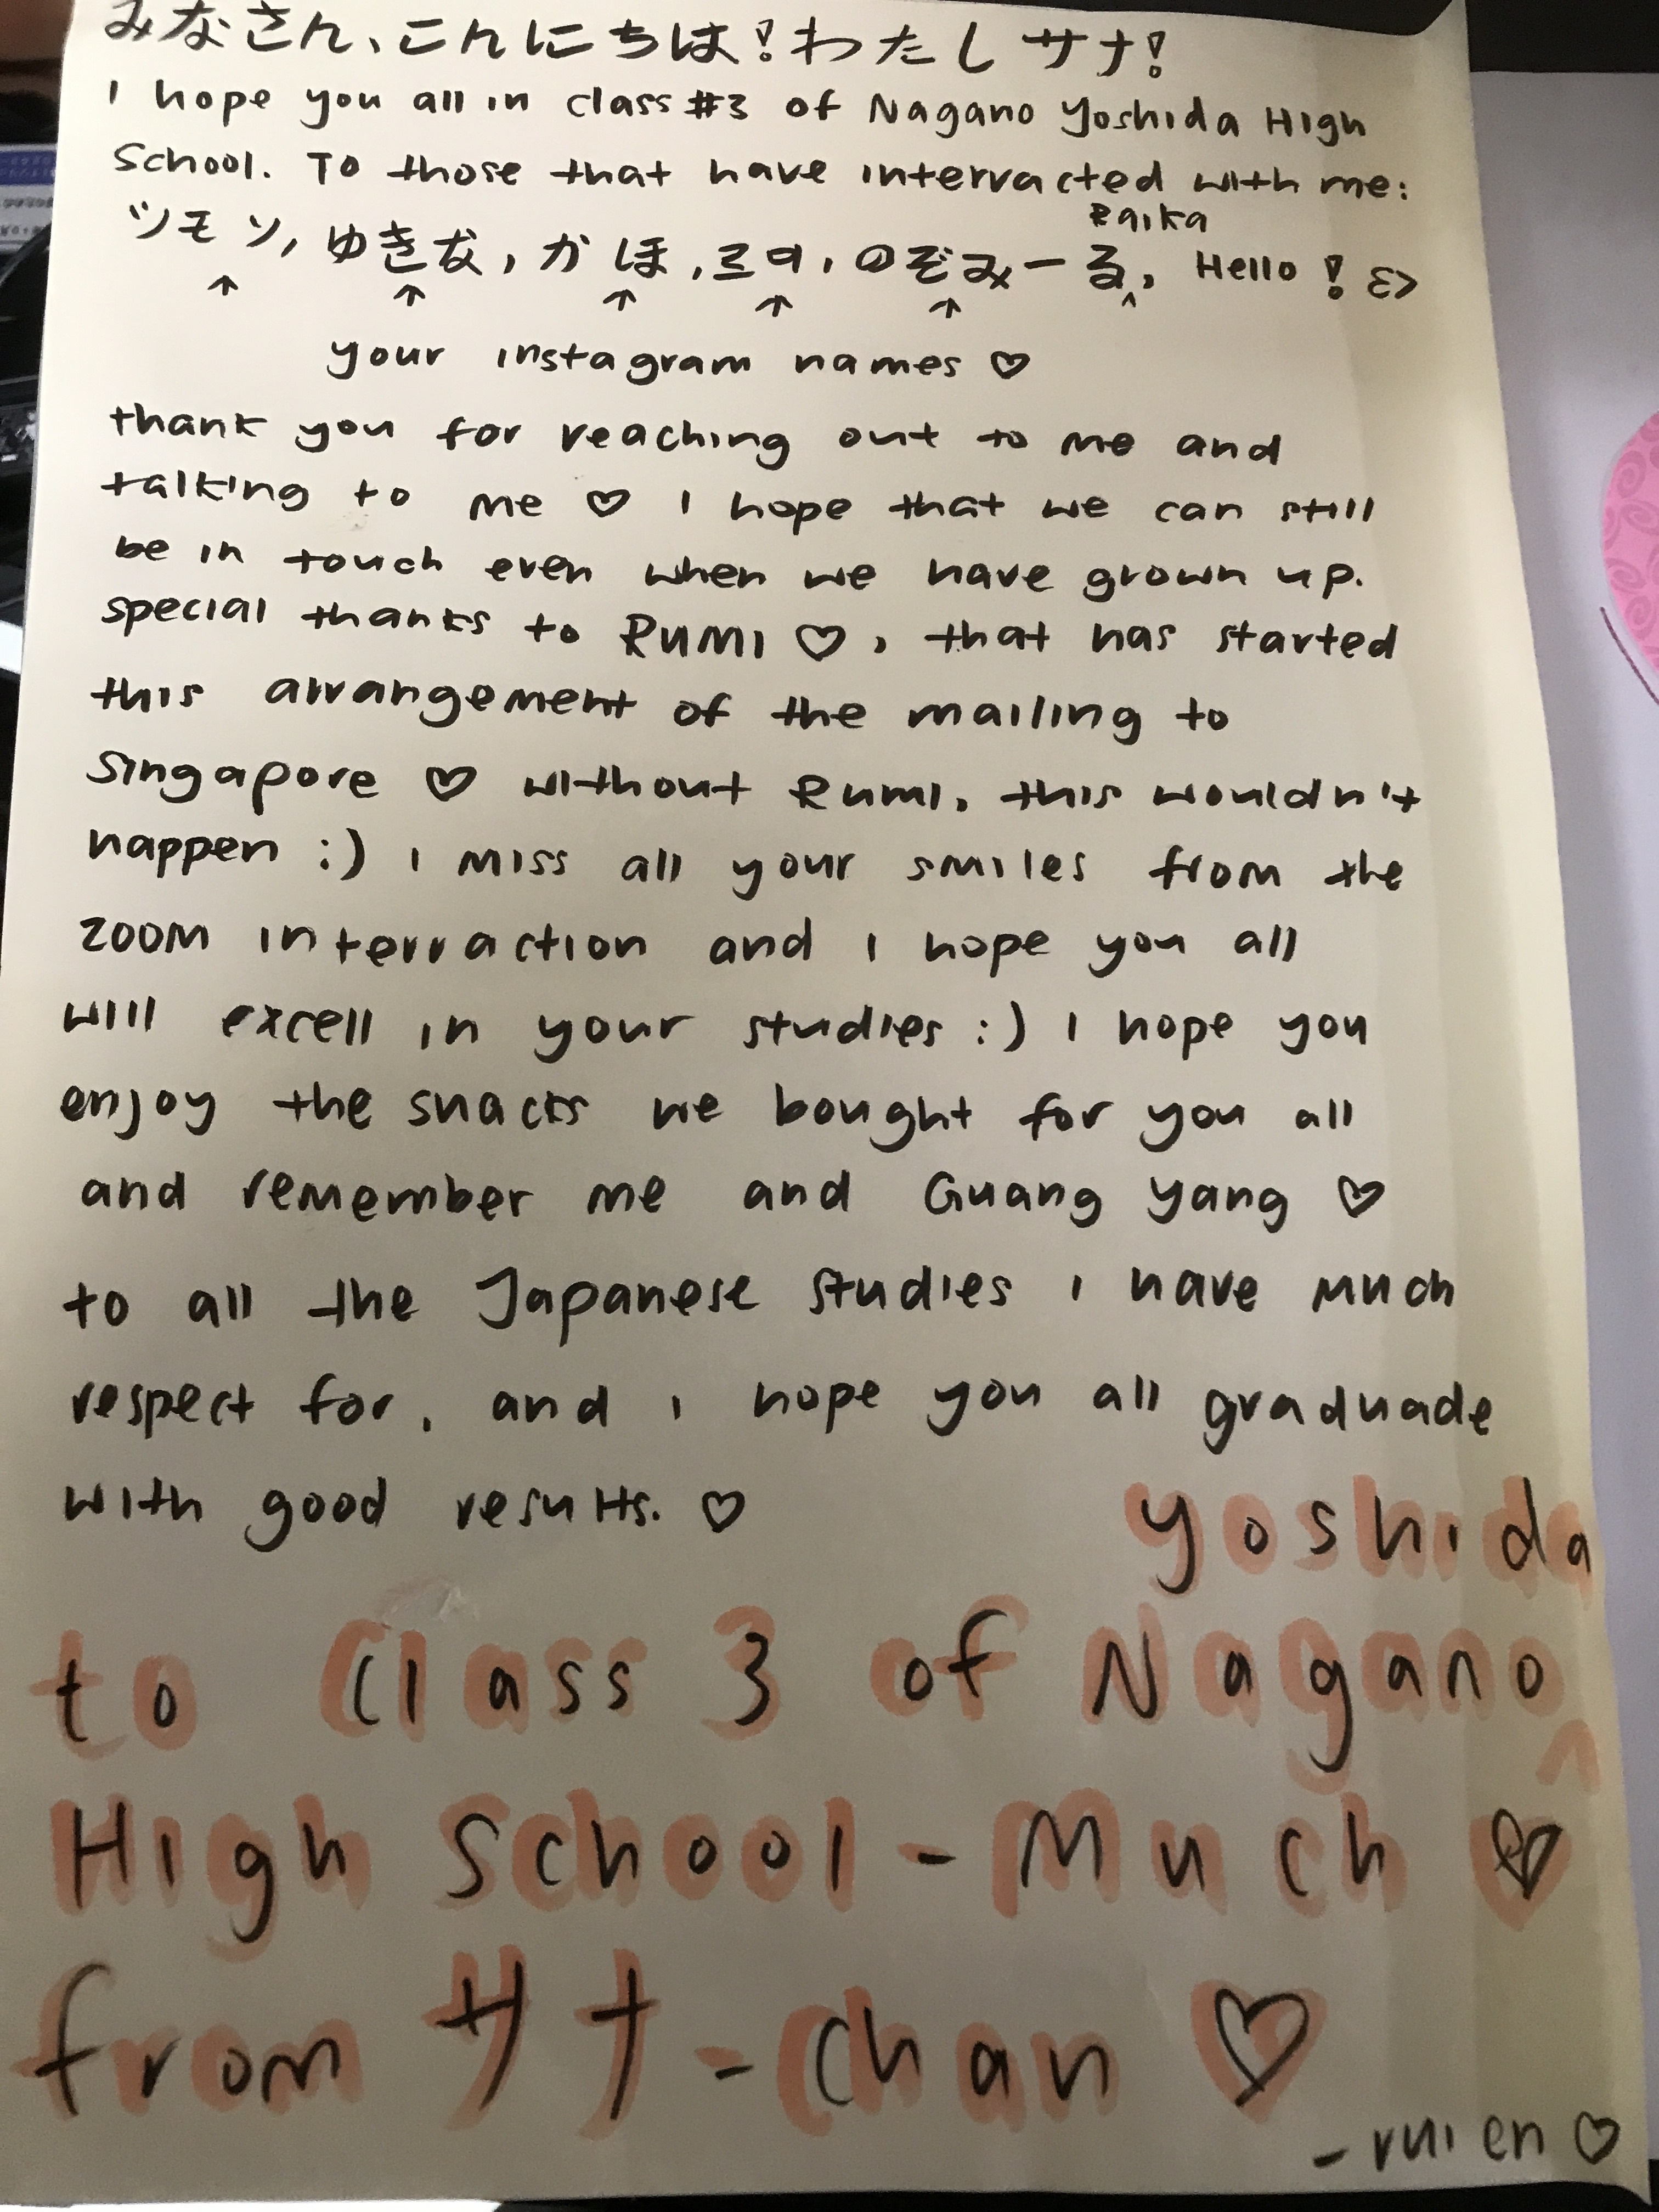 みなさん、こんにちは!わたしサナ!
I hope you all in class #3 of Nagano Yoshida High
School. To those that have interracted with me:
Raika
ツモソ, ゆきな, かほ, ミya, のぞみーる, Hello! ε>
↑ ↑ ↑ ↑ ↑ ^
your instagram names ♡
thank you for reaching out to me and
talking to me ♡ I hope that we can still
be in touch even when we have grown up.
special thanks to RUMI ♡, that has started
this arrangement of the mailing to
Singapore ♡ without Rumi, this wouldn't
happen :) I miss all your smiles from the
zoom interraction and I hope you all
will excell in your studies :) I hope you
enjoy the snacks we bought for you all
and remember me and Guang Yang ♡
to all the Japanese studies I have much
respect for, and I hope you all graduade
with good results. ♡
Yoshida
to Class 3 of Nagano ^
High School - Much ♡
from サナ-chan ♡
- rui en ♡